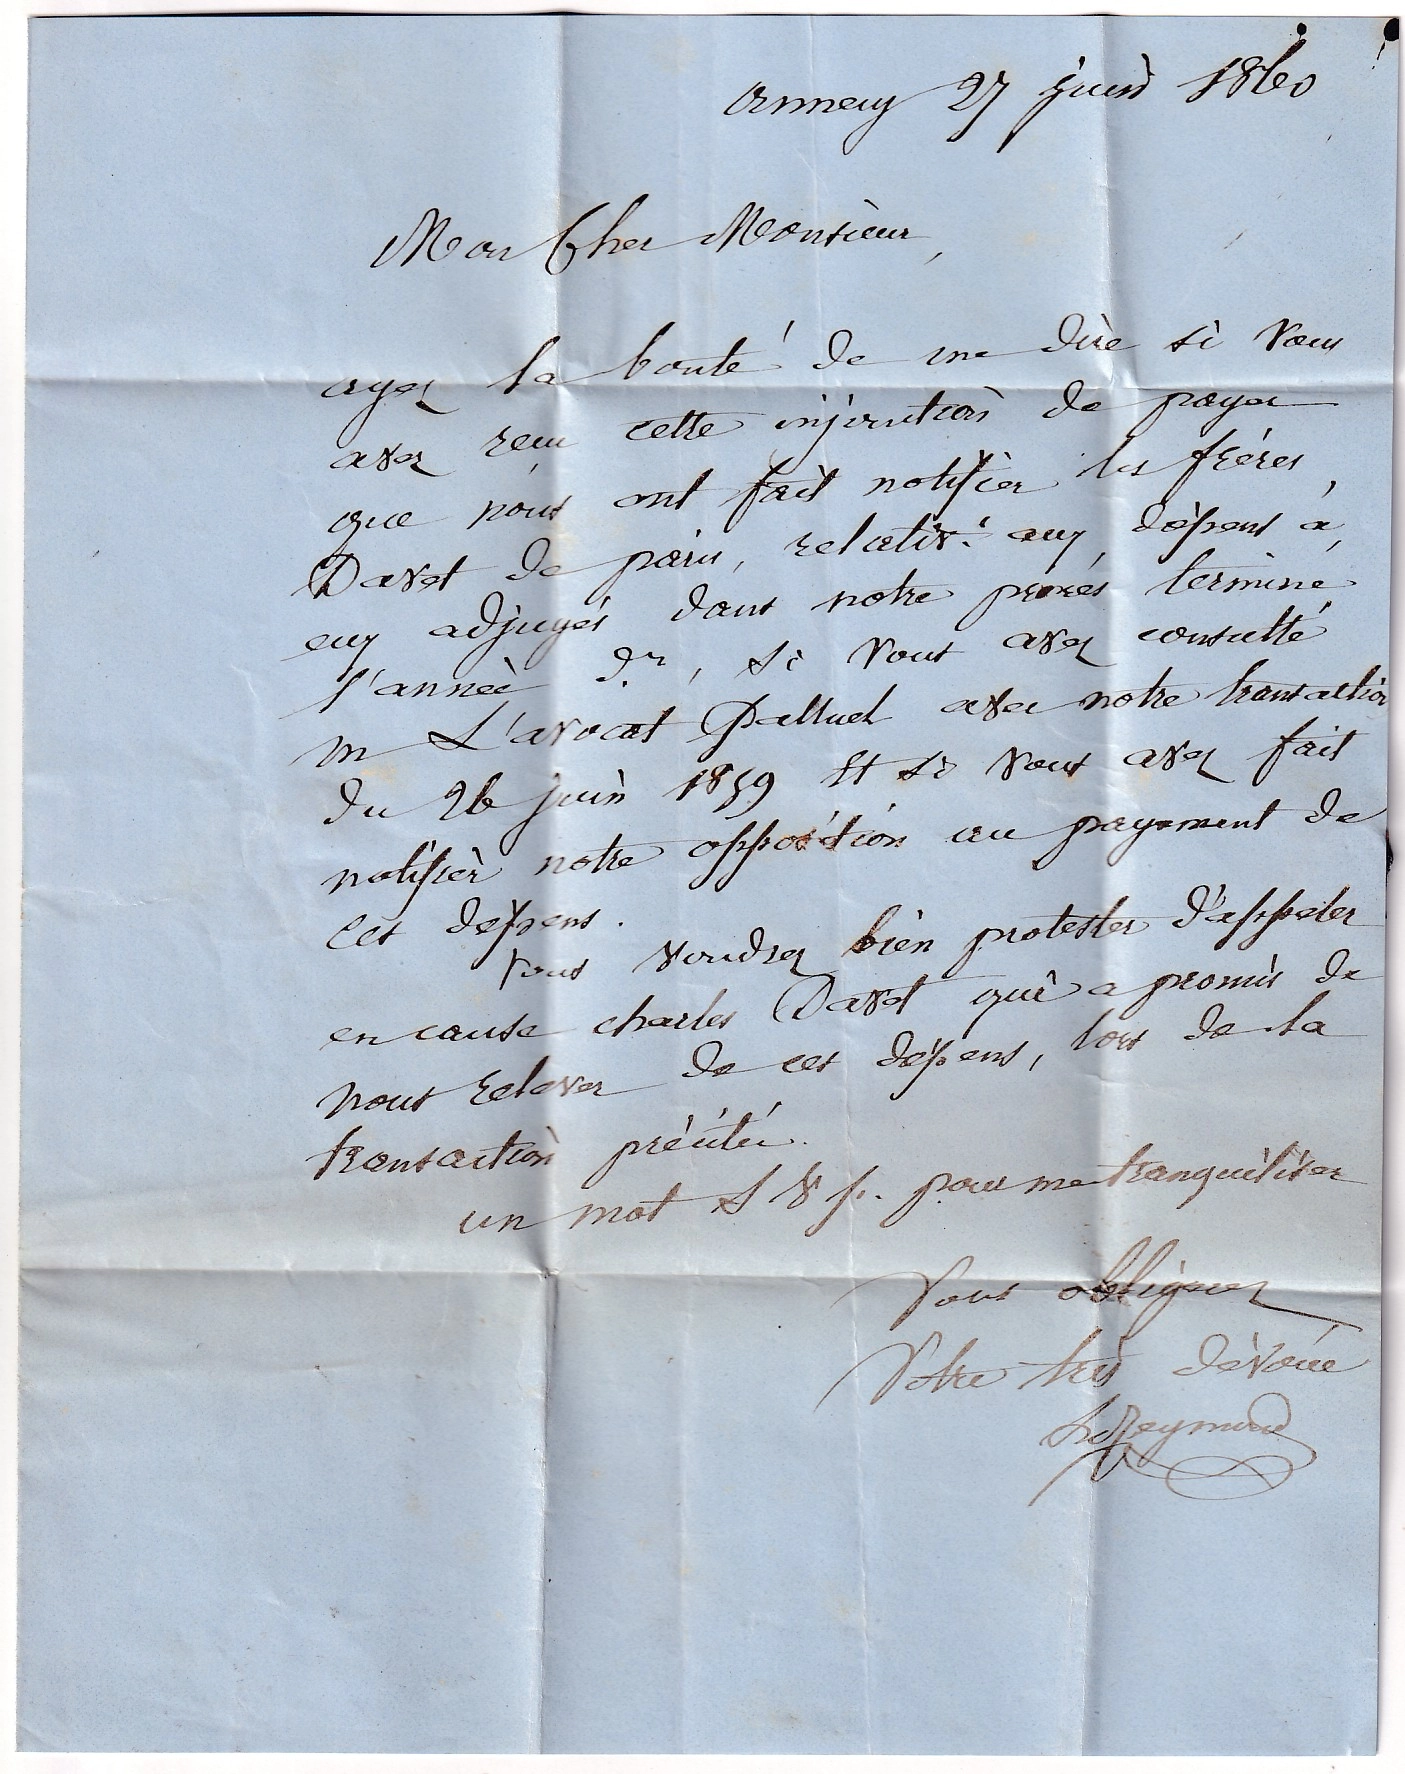 annecy 27 juin 1860
Mon Cher Monsieur,
ayez la bonté de me dire si vous
avez reçu cette injonction de payer
que nous ont fait notifier les frères
Davet de paris, relativ.t aux dépens à
eux adjugés dans notre procès terminé
l'année d.re, si vous avez consulté
m L'avocat Palluel avec notre transaction
du 26 juin 1859 et si vous avez fait
notifier notre opposition au payement de
ces dépens.
Vous voudrez bien protester d'appeler
en cause charles Davet qui a promis de
nous relever de ces dépens, lors de la
transaction précitée.
un mot S V p. pour me tranquiliser
Vous obligerez
Votre très dévoué
Reymond